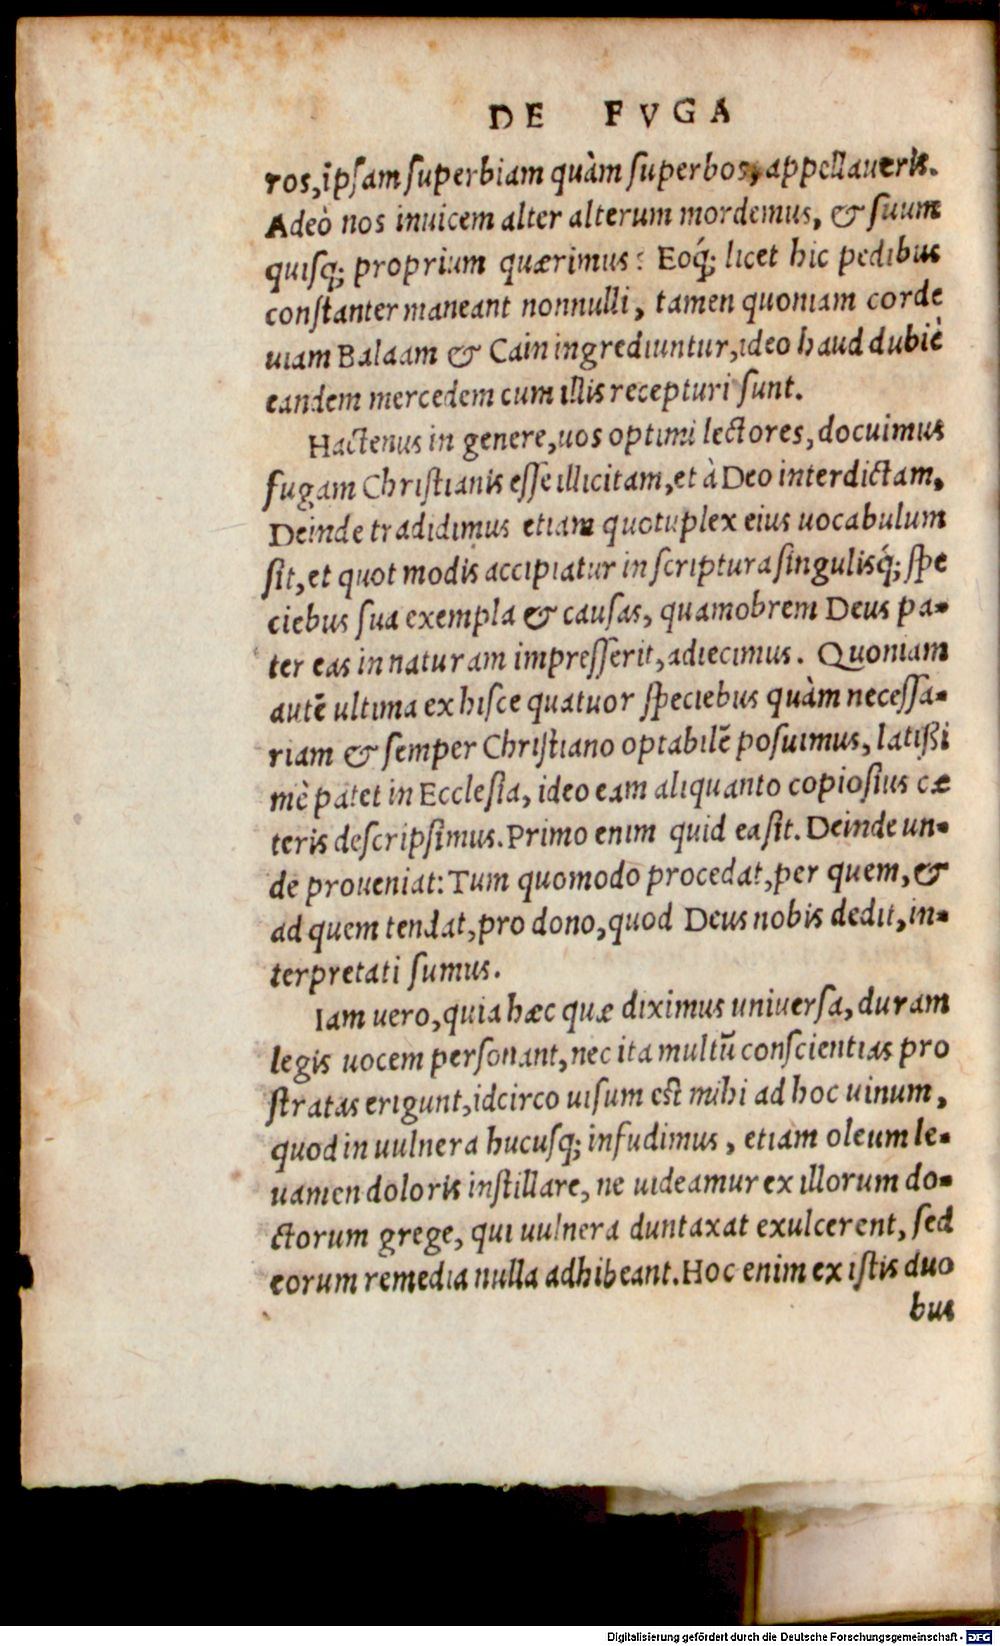 DE FVGA
ros, ipsam superbiam quàm superbos, appellaueris.
Adeò nos inuicem alter alterum mordemus, & suum
quisq́; proprium quærimus: Eoq́; licet hic pedibus
constanter maneant nonnulli, tamen quoniam corde
uiam Balaam & Cain ingrediuntur, ideo haud dubiè
eandem mercedem cum illis recepturi sunt.
Hactenus in genere, uos optimi lectores, docuimus
fugam Christianis esse illicitam, et à Deo interdictam,
Deinde tradidimus etiam quotuplex eius uocabulum
sit, et quot modis accipiatur in scriptura singulisq́; spe
ciebus sua exempla & causas, quamobrem Deus pa-
ter eas in naturam impresserit, adiecimus. Quoniam
autē ultima ex hisce quatuor speciebus quàm necessa-
riam & semper Christiano optabilē posuimus, latißi
mè patet in Ecclesia, ideo eam aliquanto copiosius cæ
teris descripsimus. Primo enim quid ea sit. Deinde un-
de proueniat: Tum quomodo procedat, per quem, &
ad quem tendat, pro dono, quod Deus nobis dedit, in-
terpretati sumus.
Iam uero, quia hæc quæ diximus uniuersa, duram
legis uocem personant, nec ita multū conscientias pro
stratas erigunt, idcirco uisum est mihi ad hoc uinum,
quod in uulnera hucusq; infudimus, etiam oleum le-
uamen doloris instillare, ne uideamur ex illorum do-
ctorum grege, qui uulnera duntaxat exulcerent, sed
eorum remedia nulla adhibeant. Hoc enim ex istis duo
bus
Digitalisierung gefördert durch die Deutsche Forschungsgemeinschaft - DFG